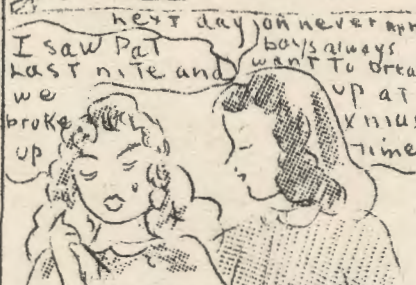 next day
I saw Pat
Last nite and
we
broke
up
oh never
boys always
want To
up at
xmas
Time